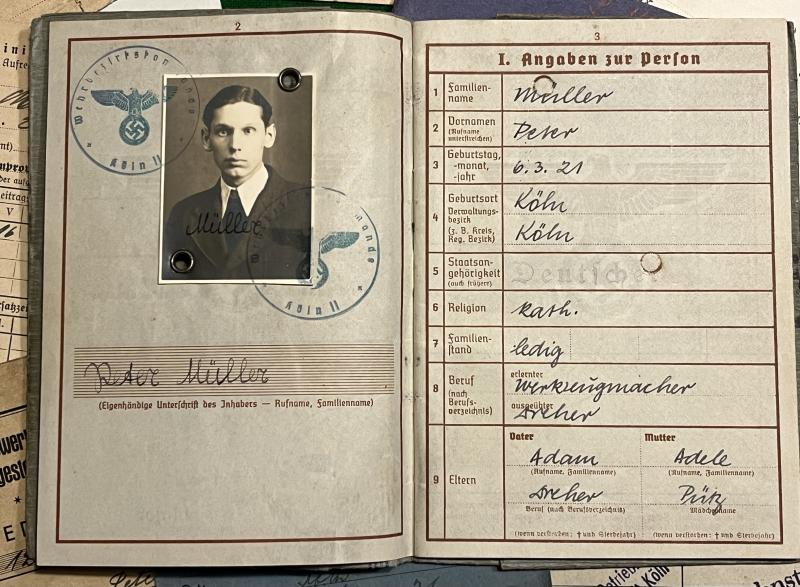 2
Wehrbezirkskommando
Köln II
Müller
Köln II
Peter Müller
(Eigenhändige Unterschrift des Inhabers — Rufname, Familienname)
3
I. Angaben zur Person
1 Familien-
name
Müller
2 Vornamen
(Rufname
unterstreichen)
Peter
3 Geburtstag,
-monat,
-jahr
6. 3. 21
4 Geburtsort
Verwaltungs-
bezirk
(z. B. Kreis,
Reg. Bezirk)
Köln
Köln
5 Staatsan-
gehörigkeit
(auch frühere)
Deutscher
6 Religion
kath.
7 Familien-
stand
ledig
8 Beruf
(nach
Berufs-
verzeichnis)
erlernter
Werkzeugmacher
ausgeübter
Dreher
9 Eltern
Vater
Mutter
Adam
Adele
(Rufname, Familienname)
(Rufname, Familienname)
Dreher
Pütz
Beruf (nach Berufsverzeichnis)
Mädchenname
(wenn verstorben: † und Sterbejahr)
(wenn verstorben: † und Sterbejahr)